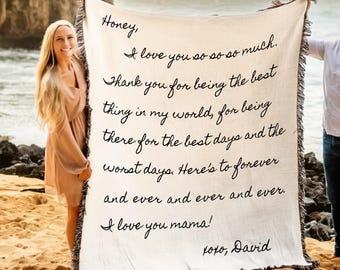 Honey,
I love you so so so much.
Thank you for being the best
thing in my world, for being
there for the best days and the
worst days. Here's to forever
and ever and ever and ever.
I love you mama!
xoxo, David